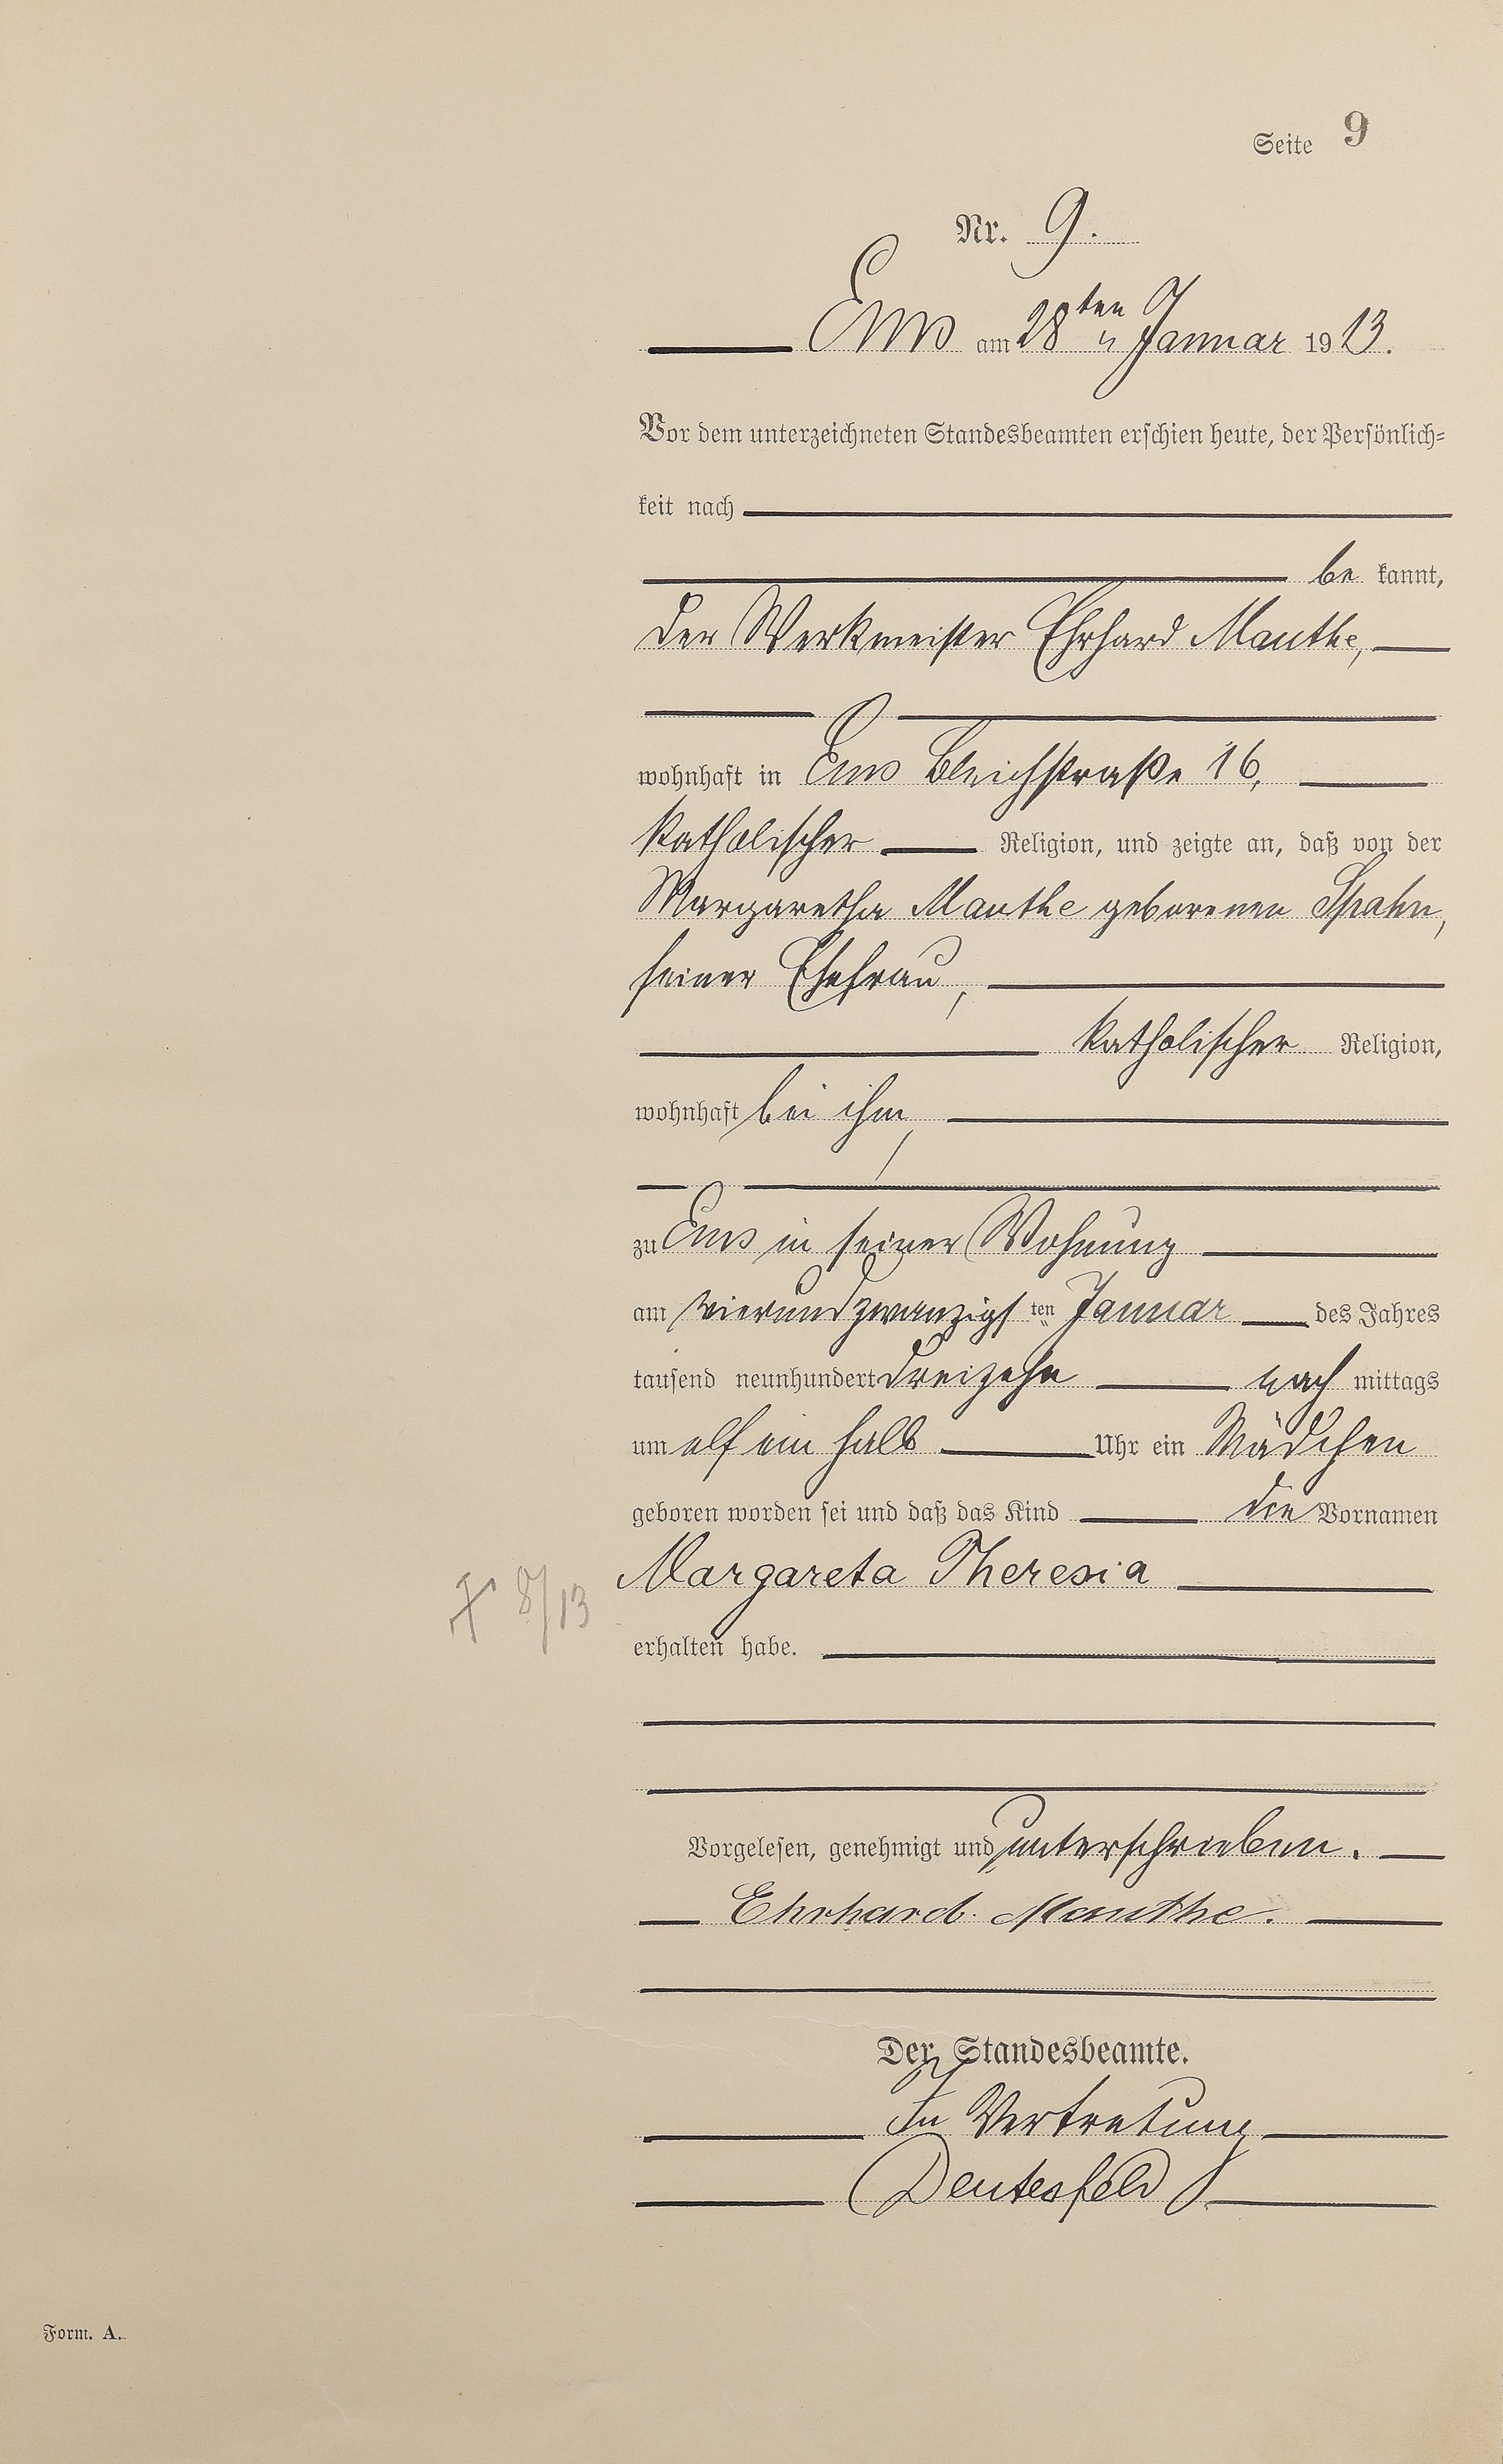 Seite 9
Nr. 9.
Ems am 28ten Januar 1913.
Vor dem unterzeichneten Standesbeamten erschien heute, der Persönlich-
keit nach
be kannt,
der Werkmeister Ehrhard Manthe,
wohnhaft in Ems Bleichstraße 16,
katholischer Religion, und zeigte an, daß von der
Margaretha Manthe geborenen Spahn,
seiner Ehefrau,
katholischer Religion,
wohnhaft bei ihm,
zu Ems in seiner Wohnung
am vierundzwanzigsten Januar des Jahres
tausend neunhundert dreizehn nach mittags
um elf ein halb Uhr ein Mädchen
geboren worden sei und daß das Kind die Vornamen
Margareta Theresia
† 8/13
erhalten habe.
Vorgelesen, genehmigt und unterschrieben.
Ehrhard Manthe.
Der Standesbeamte.
In Vertretung
Deutesfeld
Form. A.